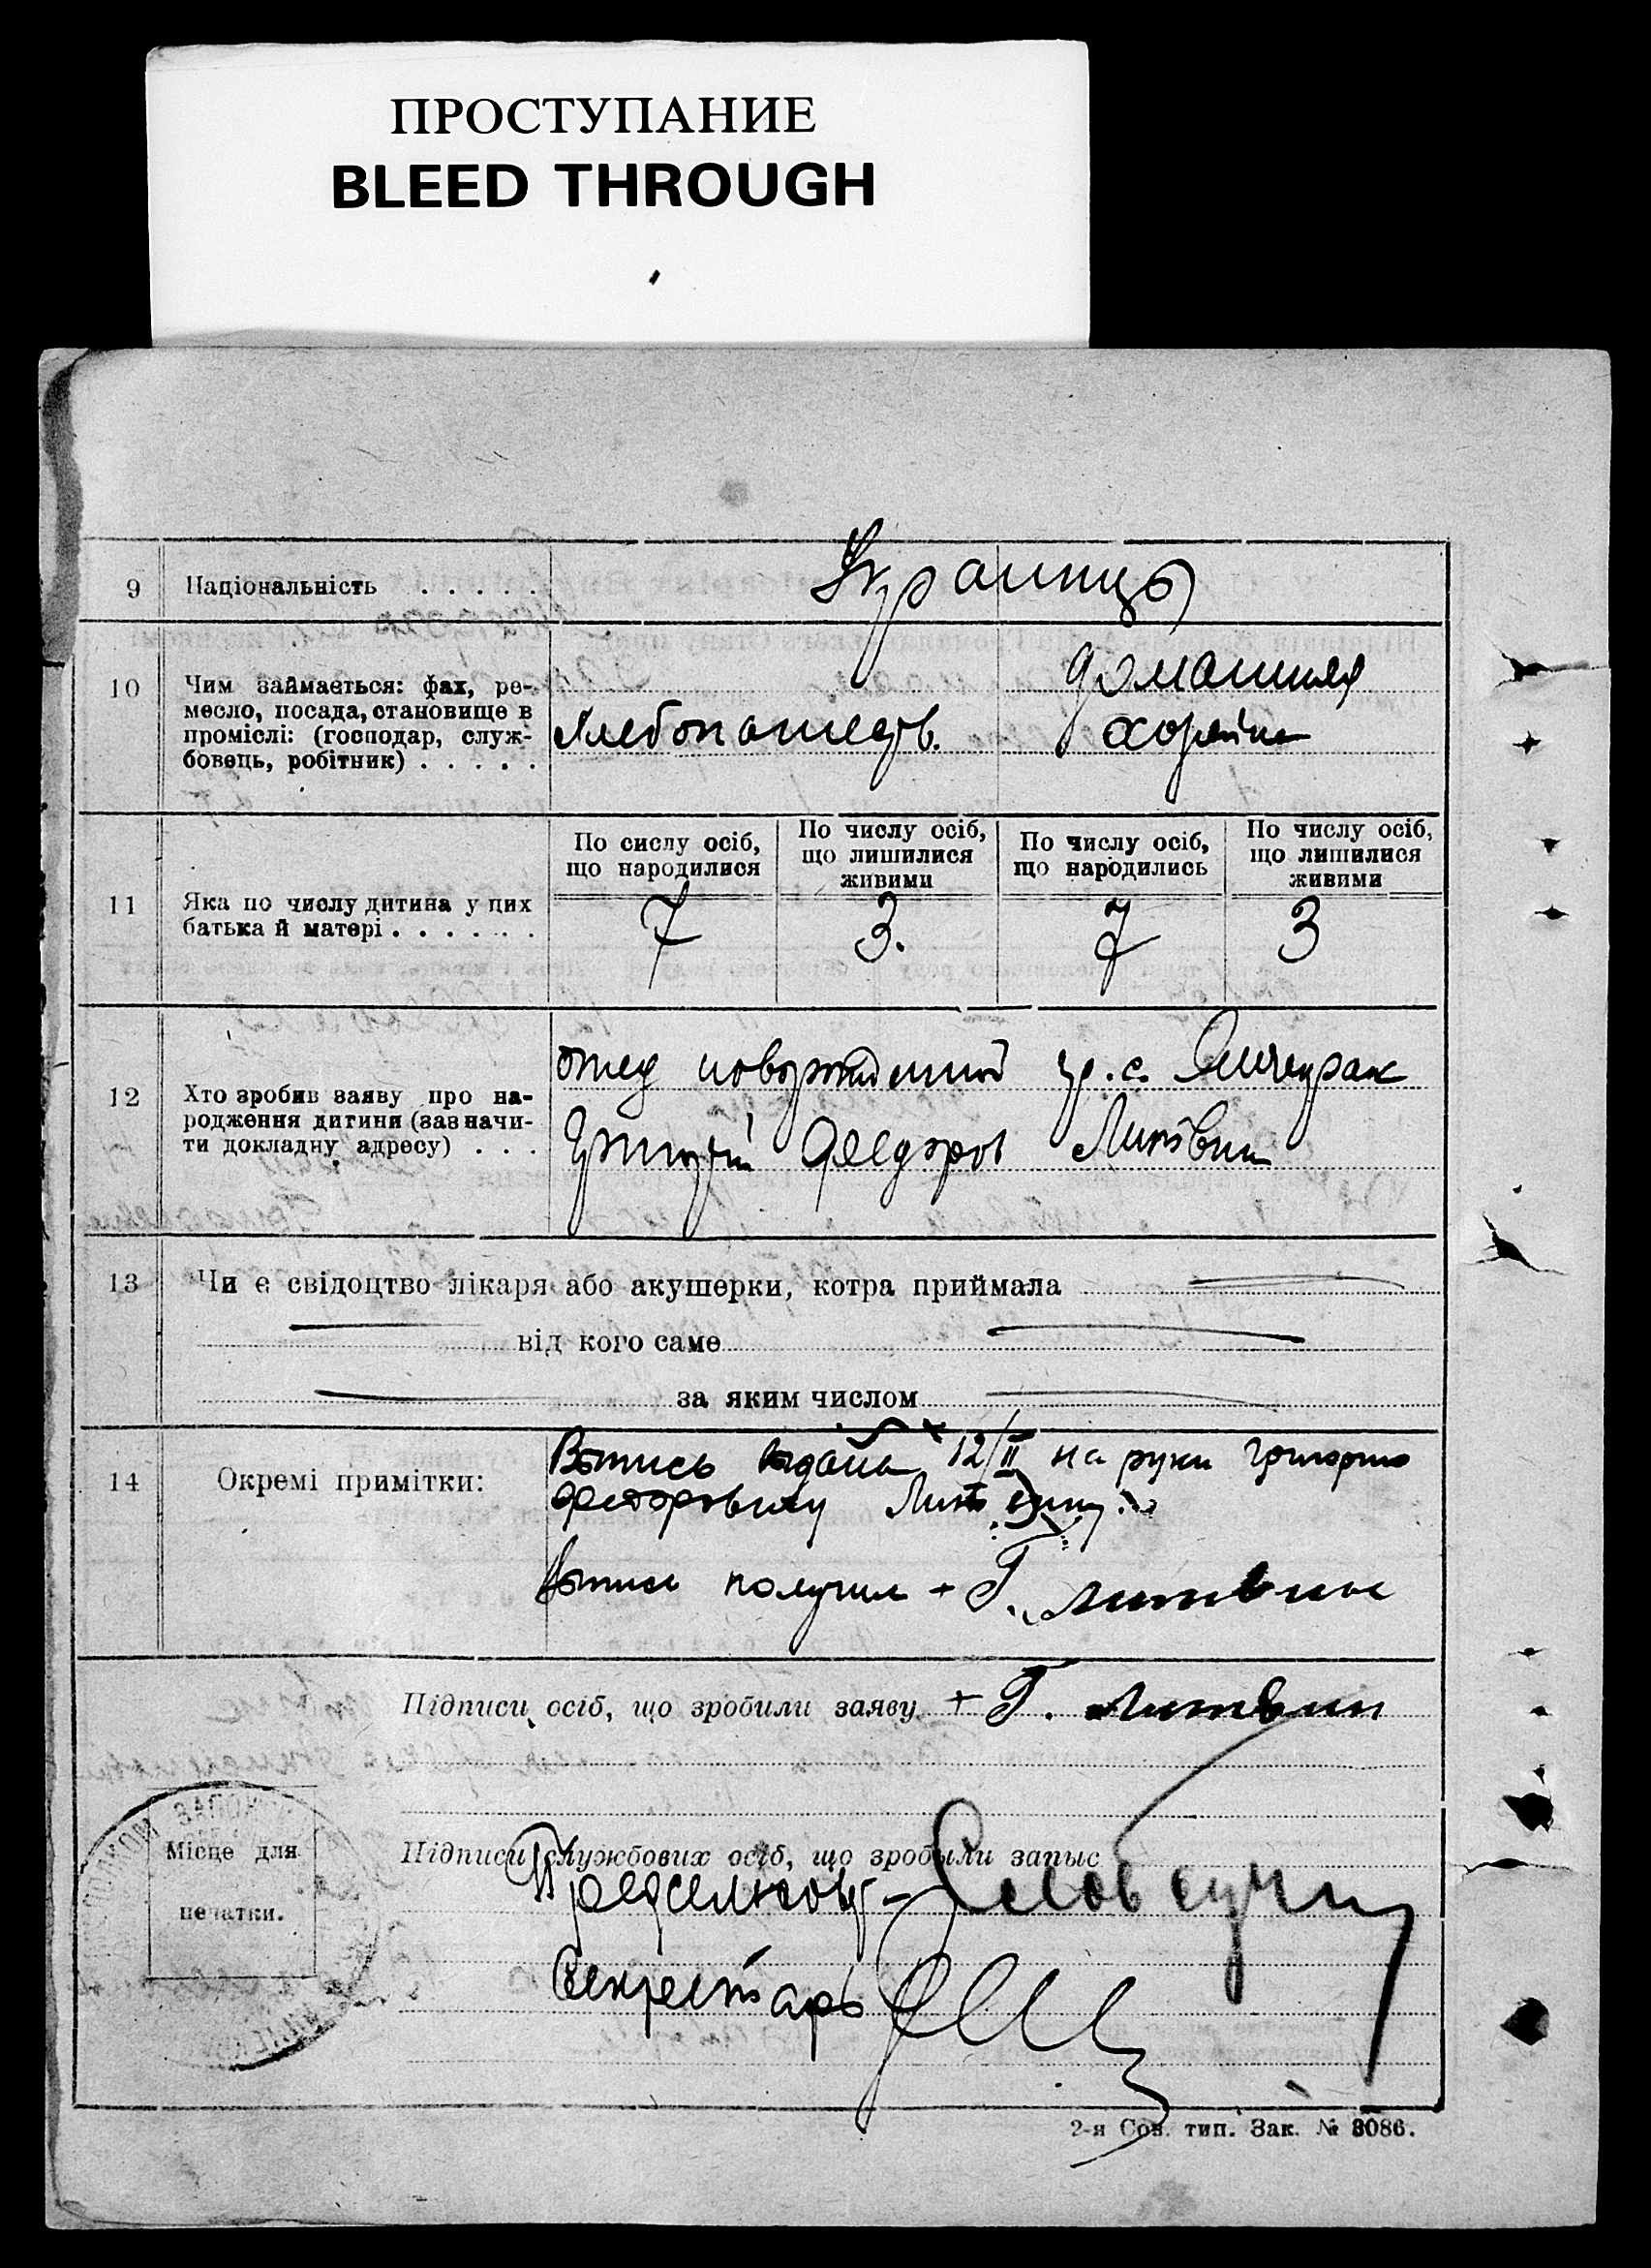 ПРОСТУПАНИЕ
BLEED THROUGH
9 Національність . . . . . Украинцы
10 Чим займається: фах, ре-
месло, посада, становище в
проміслі: (господар, служ-
бовець, робітник) . . . . .
Хлебопашество.
домашняя
хозяйка
11 Яка по числу дитина у цих
батька й матері . . . . . .
По сислу осіб,
що народилися
7
По числу осіб,
що лишилися
живими
3.
По числу осіб,
що народились
7
По числу осіб,
що лишилися
живими
3
12 Хто зробив заяву про на-
родження дитини (зазначи-
ти докладну адресу) . . .
отец новорожденной гр. с.
Григорий Феодоров Литвин
13 Чи є свідоцтво лікаря або акушерки, котра приймала
від кого саме
за яким числом
14 Окремі примітки:
Выпись выдана 12/II на руки Григорию
Федоровичу Литвину.
Выпись получил + Г. Литвин
Підписи осіб, що зробили заяву + Г. Литвин
Місце для
печатки.
Підписи службових осіб, що зробыли запыс
Предсельсовет -
Секретарь
2-я Сов. тип. Зак. № 3086.